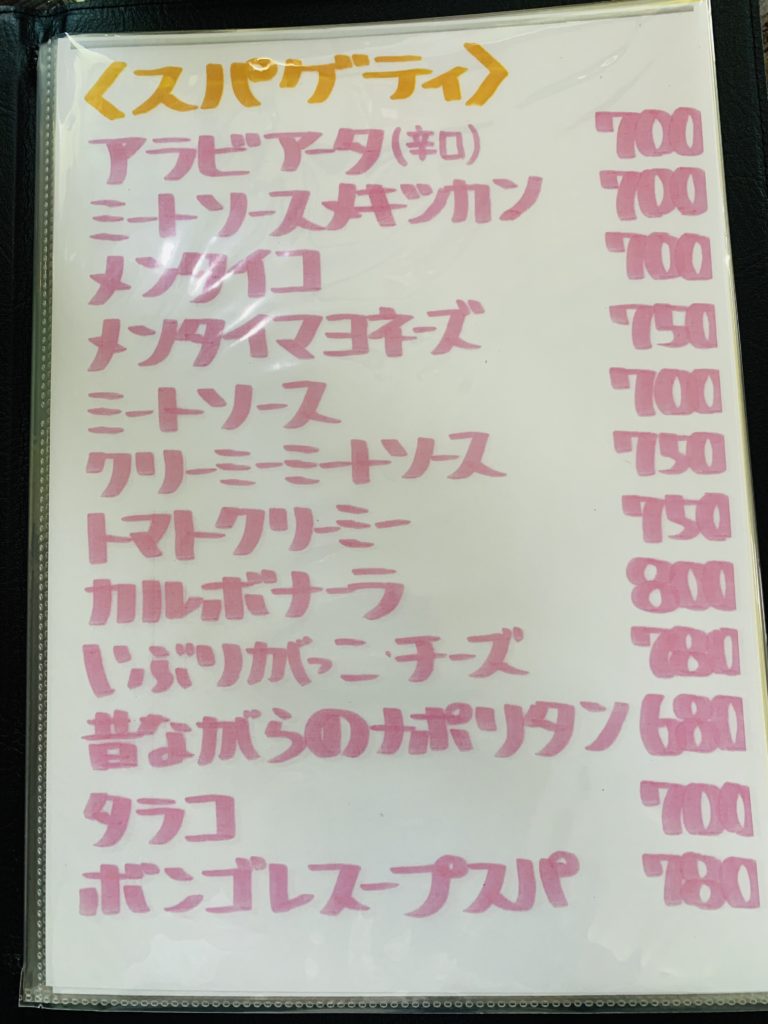 〈スパゲティ〉
アラビアータ(辛口) 700
ミートソースメキシカン 700
メンタイコ 700
メンタイマヨネーズ 750
ミートソース 700
クリーミーミートソース 750
トマトクリーミー 750
カルボナーラ 800
いぶりがっこ・チーズ 780
昔ながらのナポリタン 680
タラコ 700
ボンゴレスープスパ 780